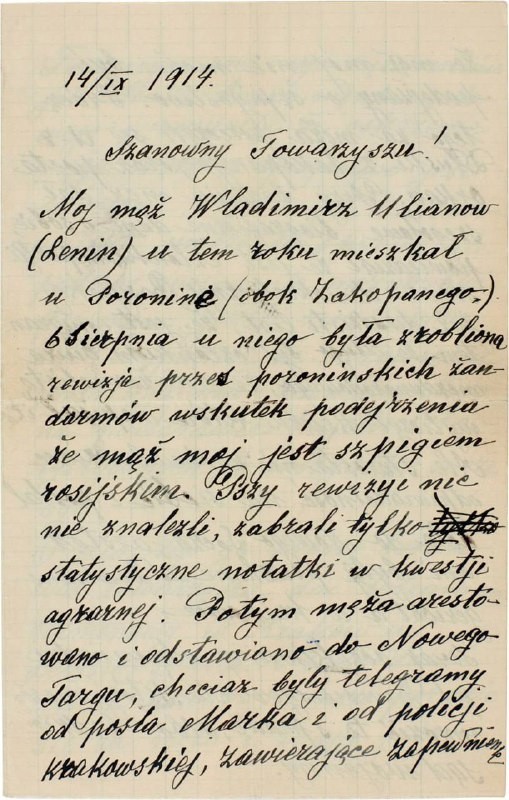 14/IX 1914.
Szanowny Towarzyszu!
Moj mąż Wladimirz Ulianow
(Lenin) u tem roku mieszkał
u Poronine (obok Zakopanego.)
6 Sierpnia u niego była zrobliona
rewizje przes poroninskich żan-
darmów wskutek podejrzenia
że mąż moj jest szpigiem
rosijskim. Pszy rewizyi nic
nie znalezli, zabrali tylko
statystyczne notatki w kwestji
agrarnej. Potym męża aresto-
wano i odstawiano do Nowego
Targu, checiaz byly telegramy
od posla Marka i od policji
krakowskiej, zawierające zapewnienie